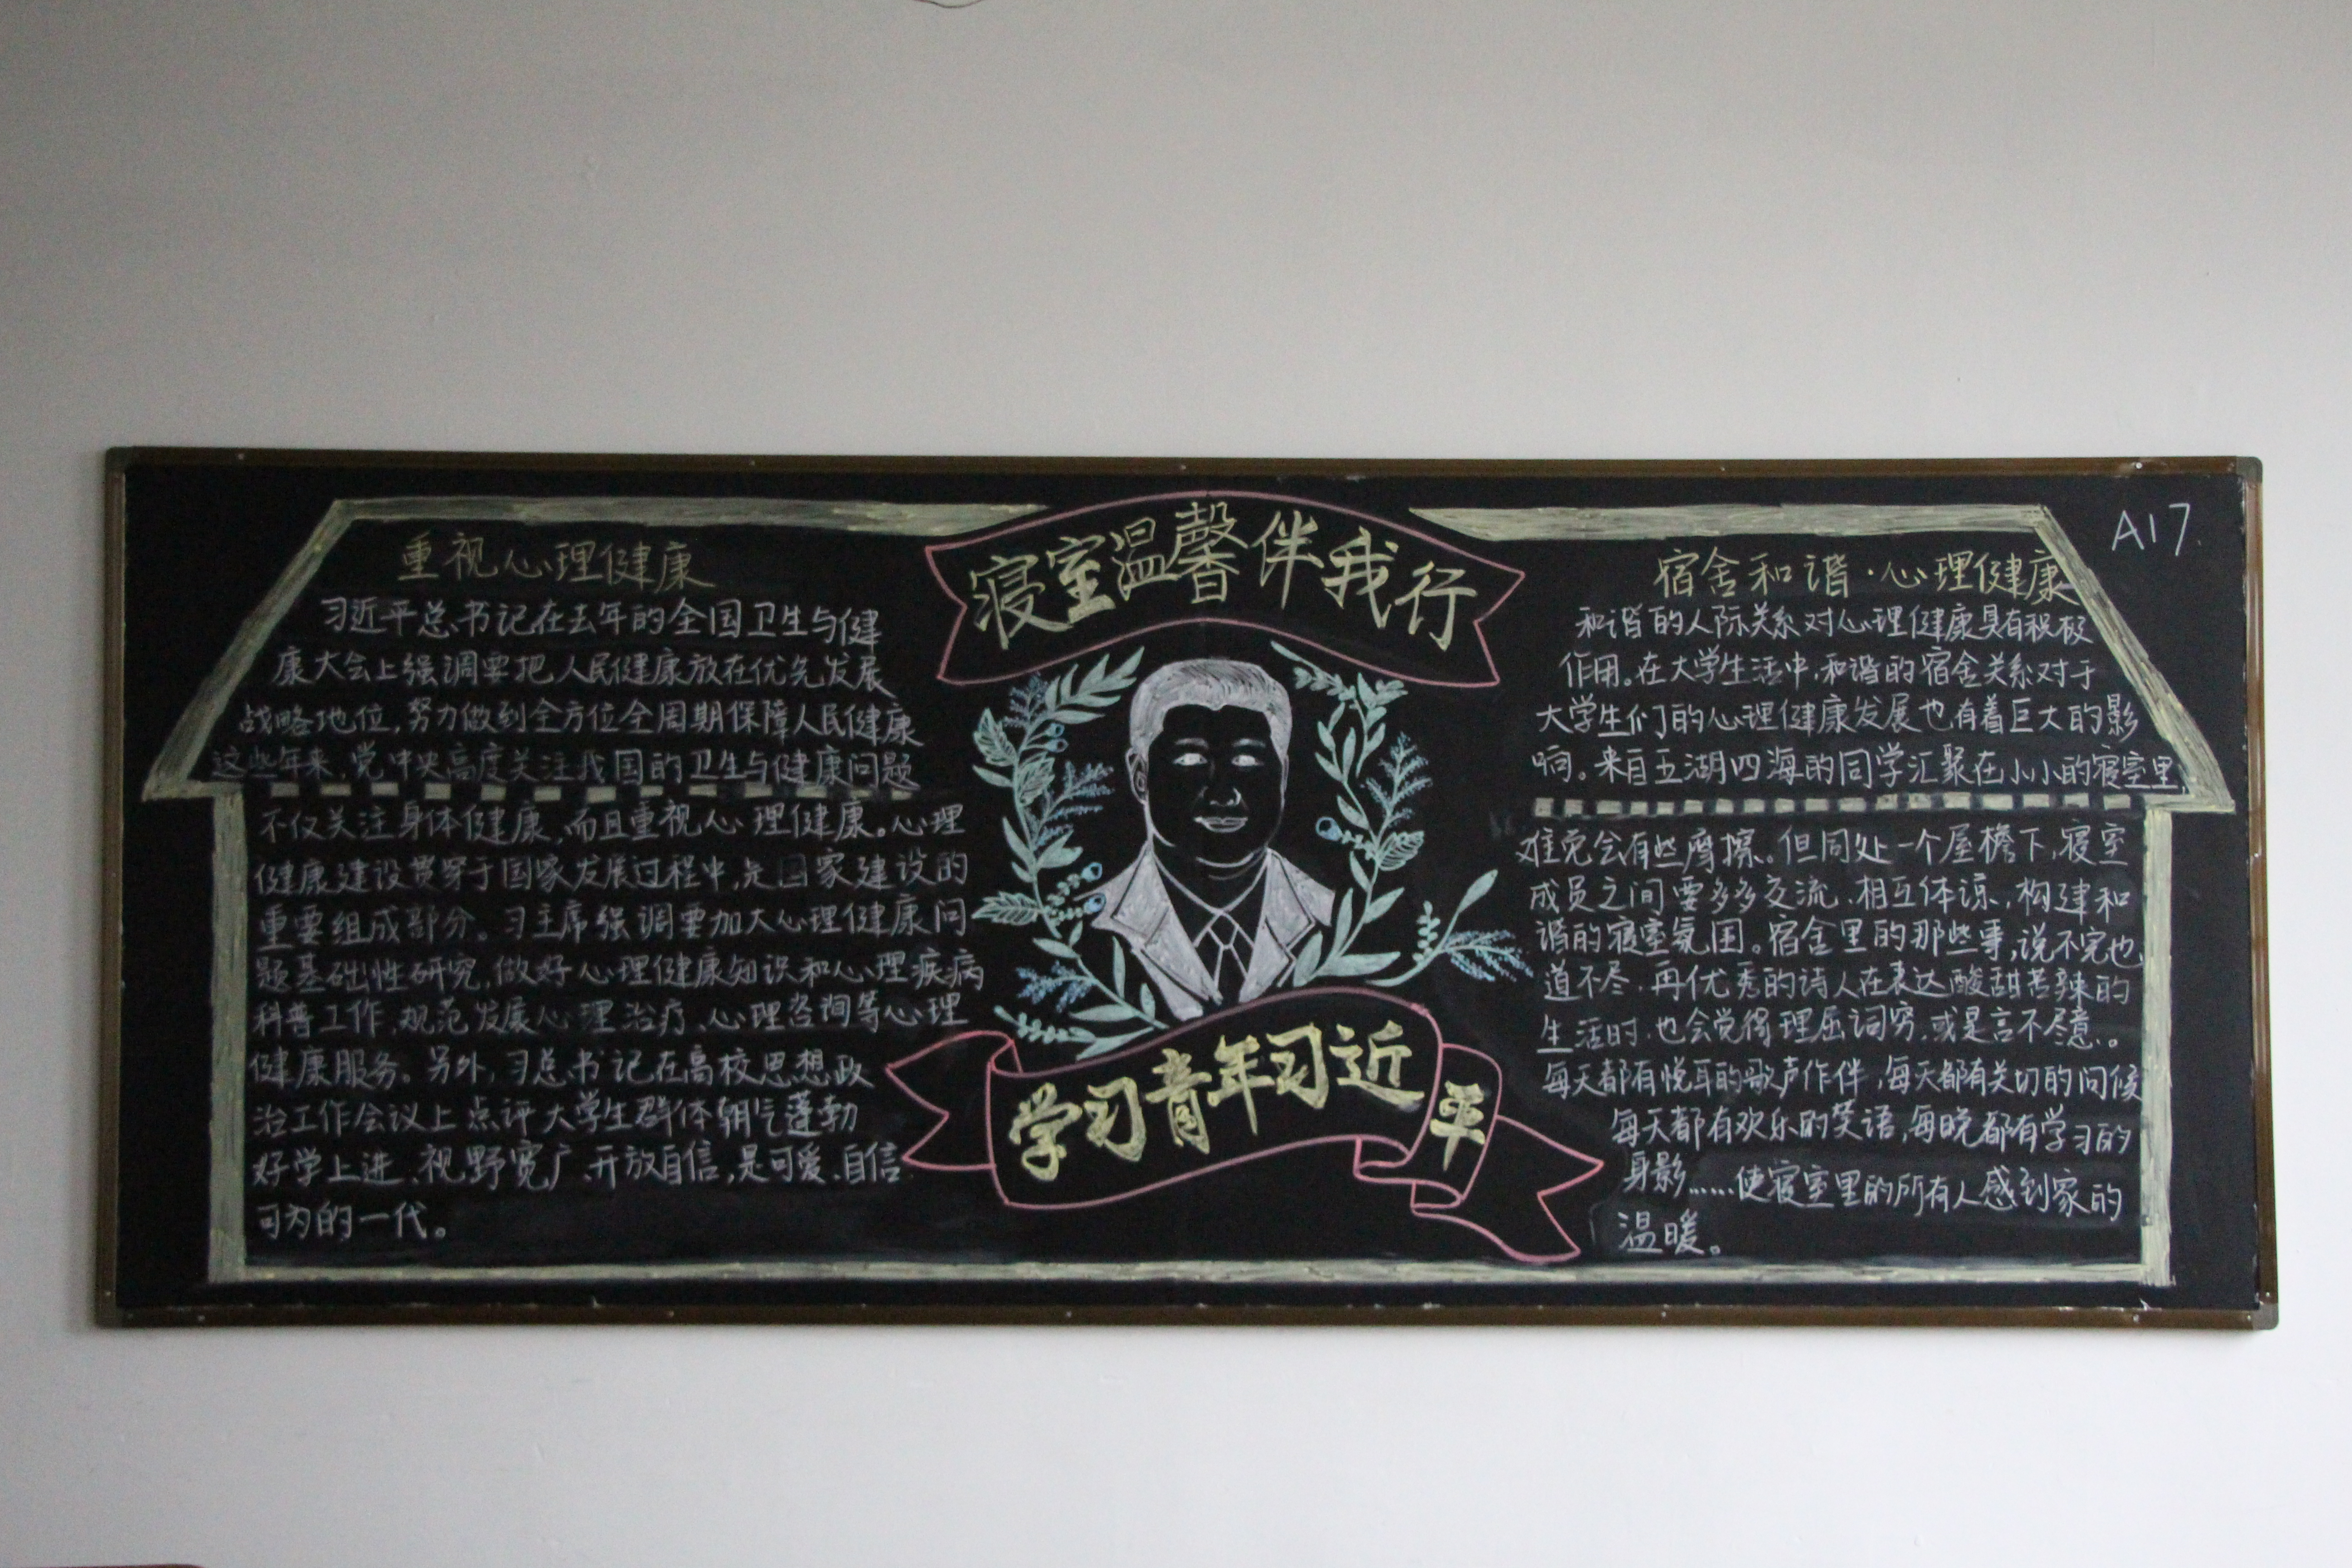 重视心理健康
习近平总书记在去年的全国卫生与健
康大会上强调要把人民健康放在优先发展
战略地位,努力做到全方位全周期保障人民健康
这些年来,党中央高度关注我国的卫生与健康问题
不仅关注身体健康,而且重视心理健康。心理
健康建设贯穿于国家发展过程中,是国家建设的
重要组成部分。习主席强调要加大心理健康问
题基础性研究,做好心理健康知识和心理疾病
科普工作,规范发展心理治疗、心理咨询等心理
健康服务。另外,习总书记在高校思想政
治工作会议上点评大学生群体朝气蓬勃
好学上进、视野宽广、开放自信,是可爱、自信
可为的一代。
寝室温馨伴我行
学习青年习近平
A17
宿舍和谐·心理健康
和谐的人际关系对心理健康具有积极
作用。在大学生活中,和谐的宿舍关系对于
大学生们的心理健康发展也有着巨大的影
响。来自五湖四海的同学汇聚在小小的寝室里,
难免会有些摩擦。但同处一个屋檐下,寝室
成员之间要多多交流,相互体谅,构建和
谐的寝室氛围。宿舍里的那些事,说不完也
道不尽,再优秀的诗人在表达酸甜苦辣的
生活时,也会觉得理屈词穷,或是言不尽意。
每天都有悦耳的歌声作伴,每天都有关切的问候
每天都有欢乐的笑语,每晚都有学习的
身影……使寝室里的所有人感到家的
温暖。